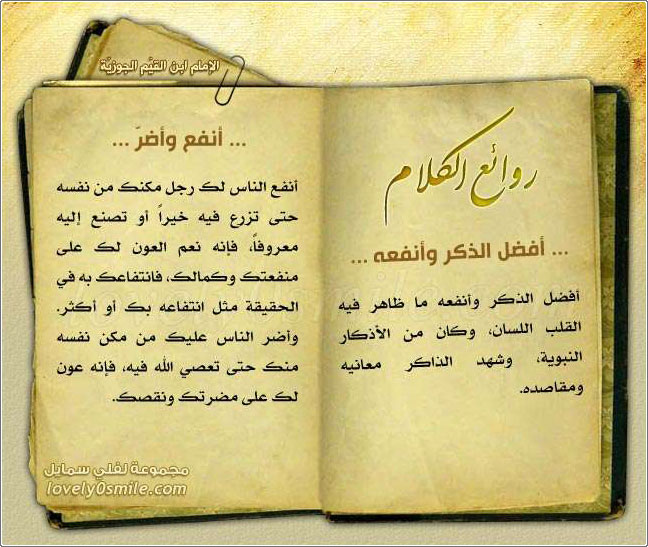 الإمام ابن القيّم الجوزيّة
روائع الكلام
... أفضل الذكر وأنفعه ...
أفضل الذكر وأنفعه ما ظاهر فيه
القلب اللسان، وكان من الأذكار
النبوية، وشهد الذاكر معانيه
ومقاصده.
... أنفع وأضرّ ...
أنفع الناس لك رجل مكنك من نفسه
حتى تزرع فيه خيراً أو تصنع إليه
معروفاً، فإنه نعم العون لك على
منفعتك وكمالك، فانتفاعك به في
الحقيقة مثل انتفاعه بك أو أكثر.
وأضر الناس عليك من مكن نفسه
منك حتى تعصي الله فيه، فإنه عون
لك على مضرتك ونقصك.
مجموعة لفلي سمايل
lovely0smile.com